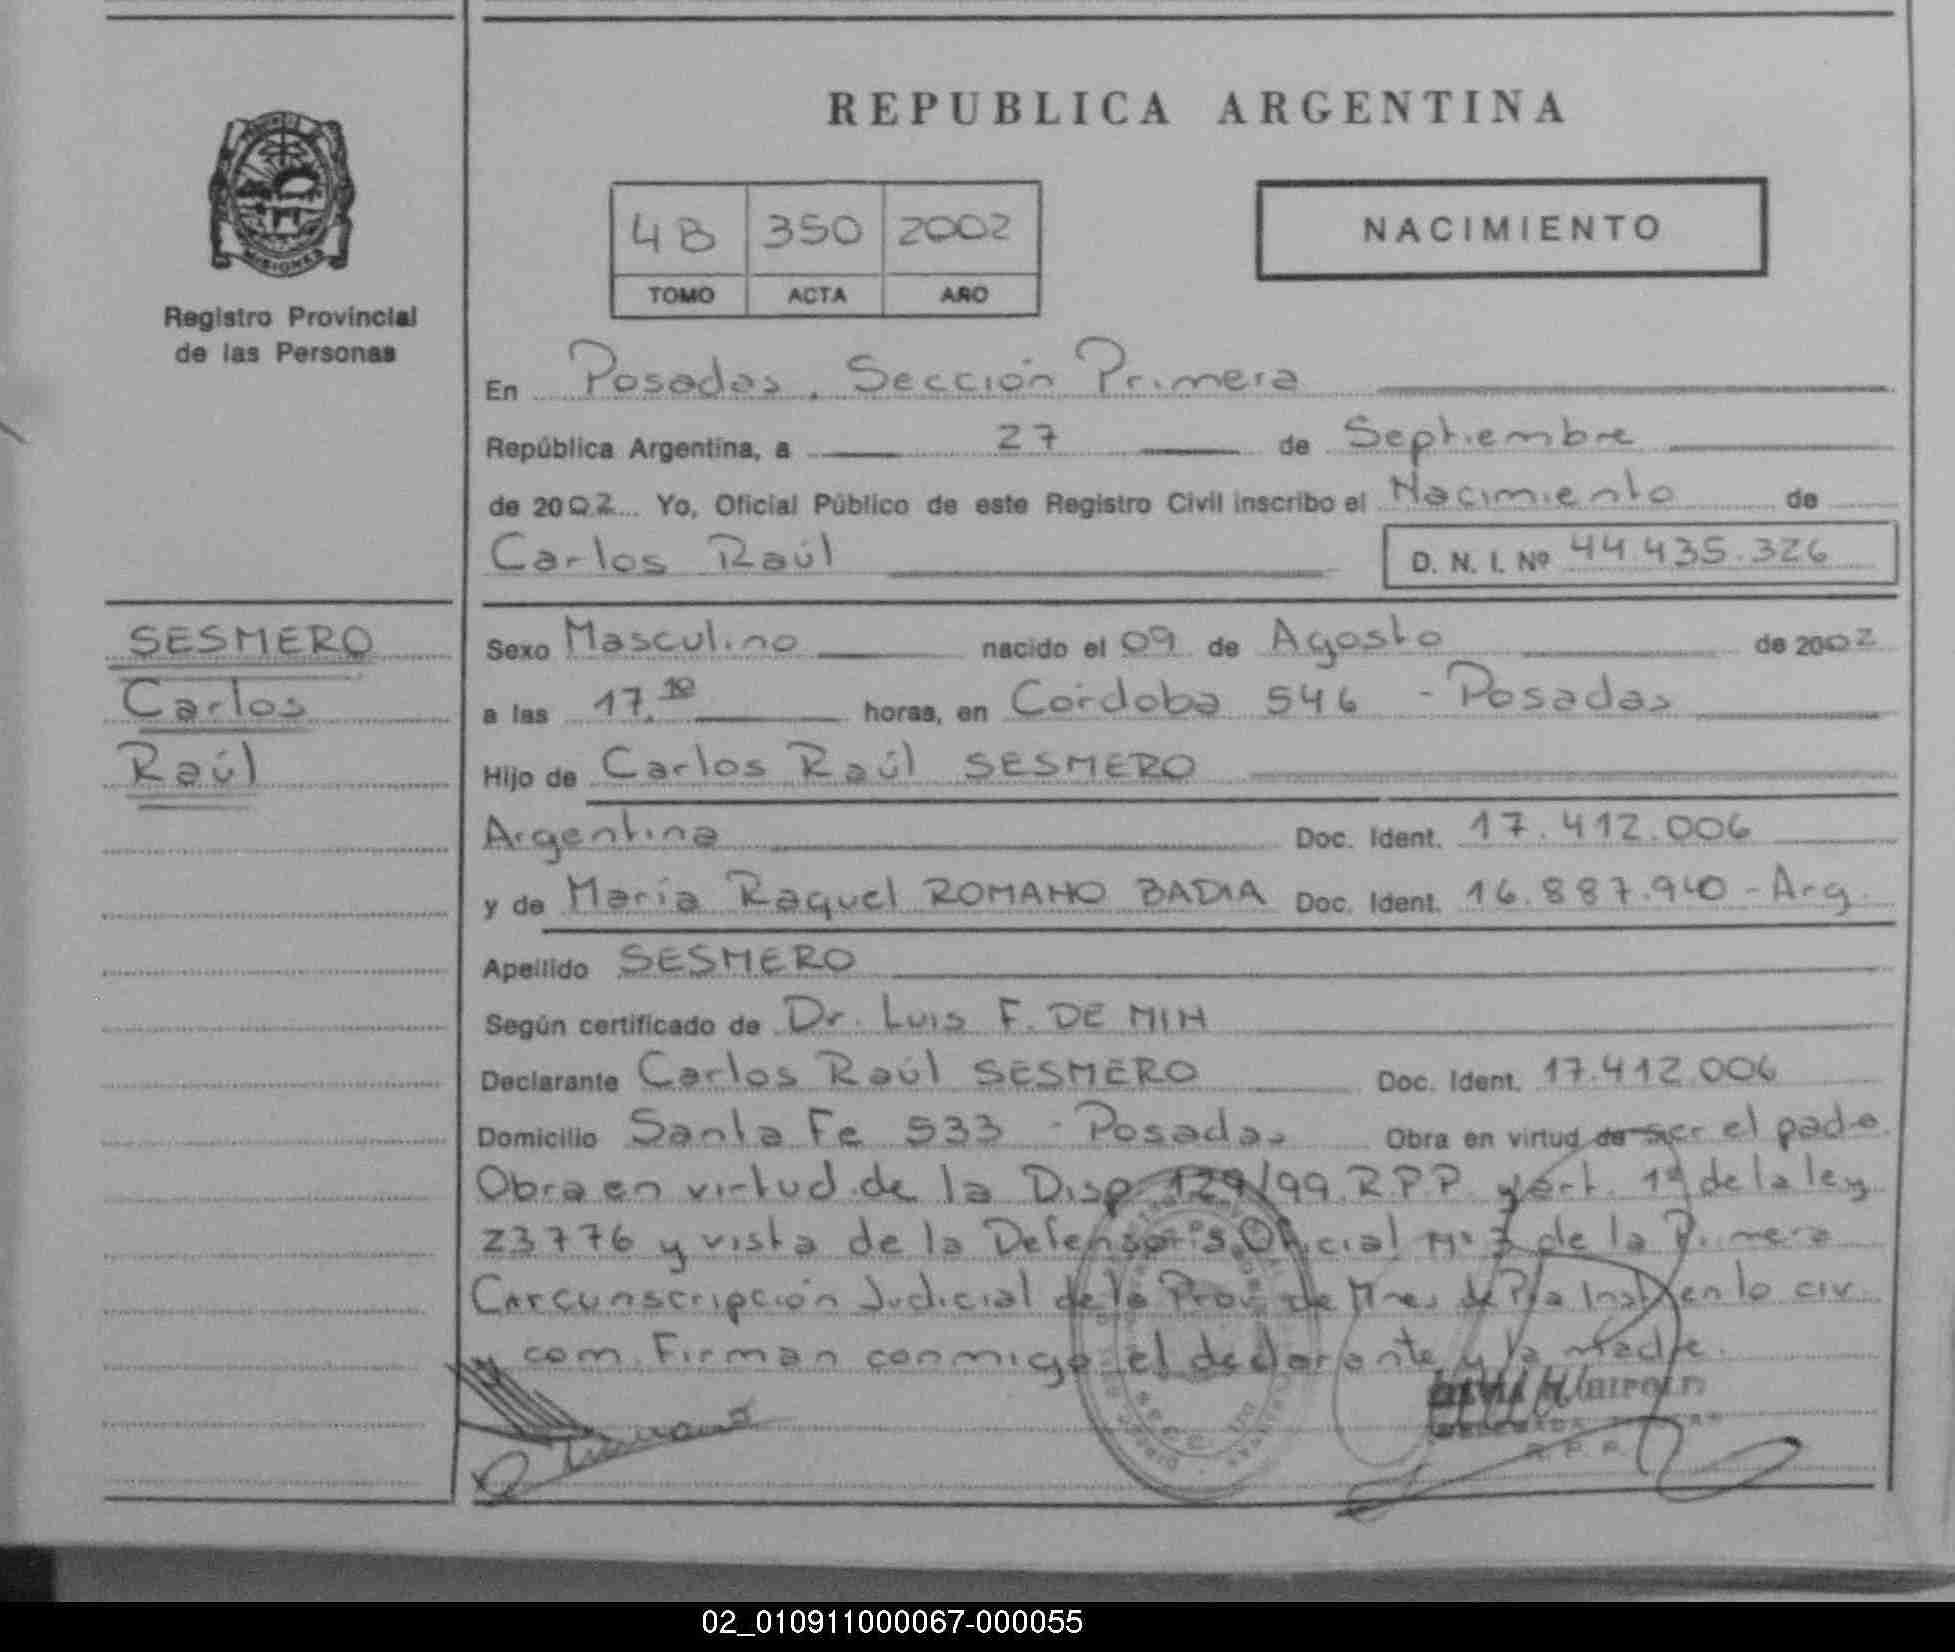 REPUBLICA ARGENTINA
MISIONES
Registro Provincial
de las Personas
4B 350 2002
TOMO ACTA AÑO
NACIMIENTO
En Posadas, Sección Primera
República Argentina, a 27 de Septiembre
de 2002 Yo, Oficial Público de este Registro Civil inscribo el Nacimiento de
Carlos Raúl D. N. I. Nº 44.435.326
SESMERO
Carlos
Raúl
Sexo Masculino nacido el 09 de Agosto de 2002
a las 17.10 horas, en Córdoba 546 - Posadas
Hijo de Carlos Raúl SESMERO
Argentina Doc. Ident. 17.412.006
y de María Raquel ROMANO BADIA Doc. Ident. 16.887.940 - Arg.
Apellido SESMERO
Según certificado de Dr. Luis F. DE MIN
Declarante Carlos Raúl SESMERO Doc. Ident. 17.412.006
Domicilio Santa Fe 533 - Posadas Obra en virtud de ser el padre.
Obra en virtud de la Disp 129/99 R.P.P. y art. 1º de la ley
23776 y vista de la Defensoría Oficial Nº 3 de la Primera
Circunscripción Judicial de la Prov. de Mnes de Pra Inst en lo civ.
y com. Firman conmigo el declarante y la madre.
R. P. P.
02_010911000067-000055